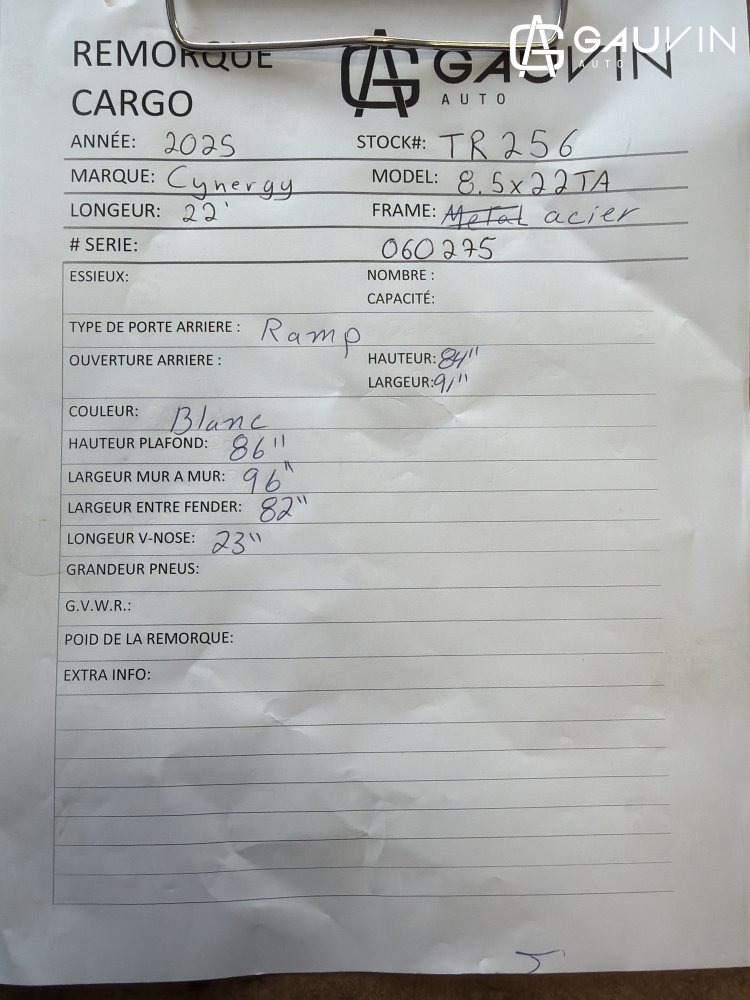 GAUVIN
AUTO
REMORQUE
CARGO
GAUVIN
AUTO
ANNÉE: 2025 STOCK#: TR256
MARQUE: Cynergy MODEL: 8.5x22TA
LONGEUR: 22' FRAME: Metal acier
# SERIE: 060275
ESSIEUX: NOMBRE :
CAPACITÉ:
TYPE DE PORTE ARRIERE : Ramp
OUVERTURE ARRIERE : HAUTEUR: 84"
LARGEUR: 91"
COULEUR: Blanc
HAUTEUR PLAFOND: 86"
LARGEUR MUR A MUR: 96"
LARGEUR ENTRE FENDER: 82"
LONGEUR V-NOSE: 23"
GRANDEUR PNEUS:
G.V.W.R.:
POID DE LA REMORQUE:
EXTRA INFO: